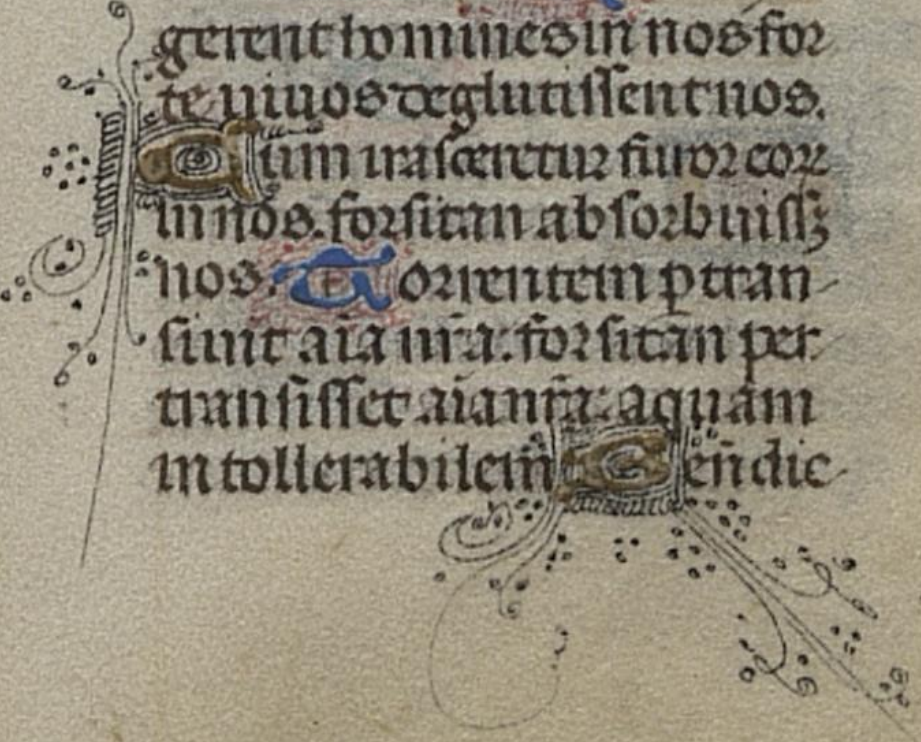 gerent homines in nos for
te uiuos deglutissent nos.
Cum irasceretur furor eoꝝ
in nos. forsitan absorbuissꝫ
nos. Torrentem ꝑtran
siuit aīa nr̄a: forsitan per
transisset aīa nr̄a: aquam
intollerabilem Benedic